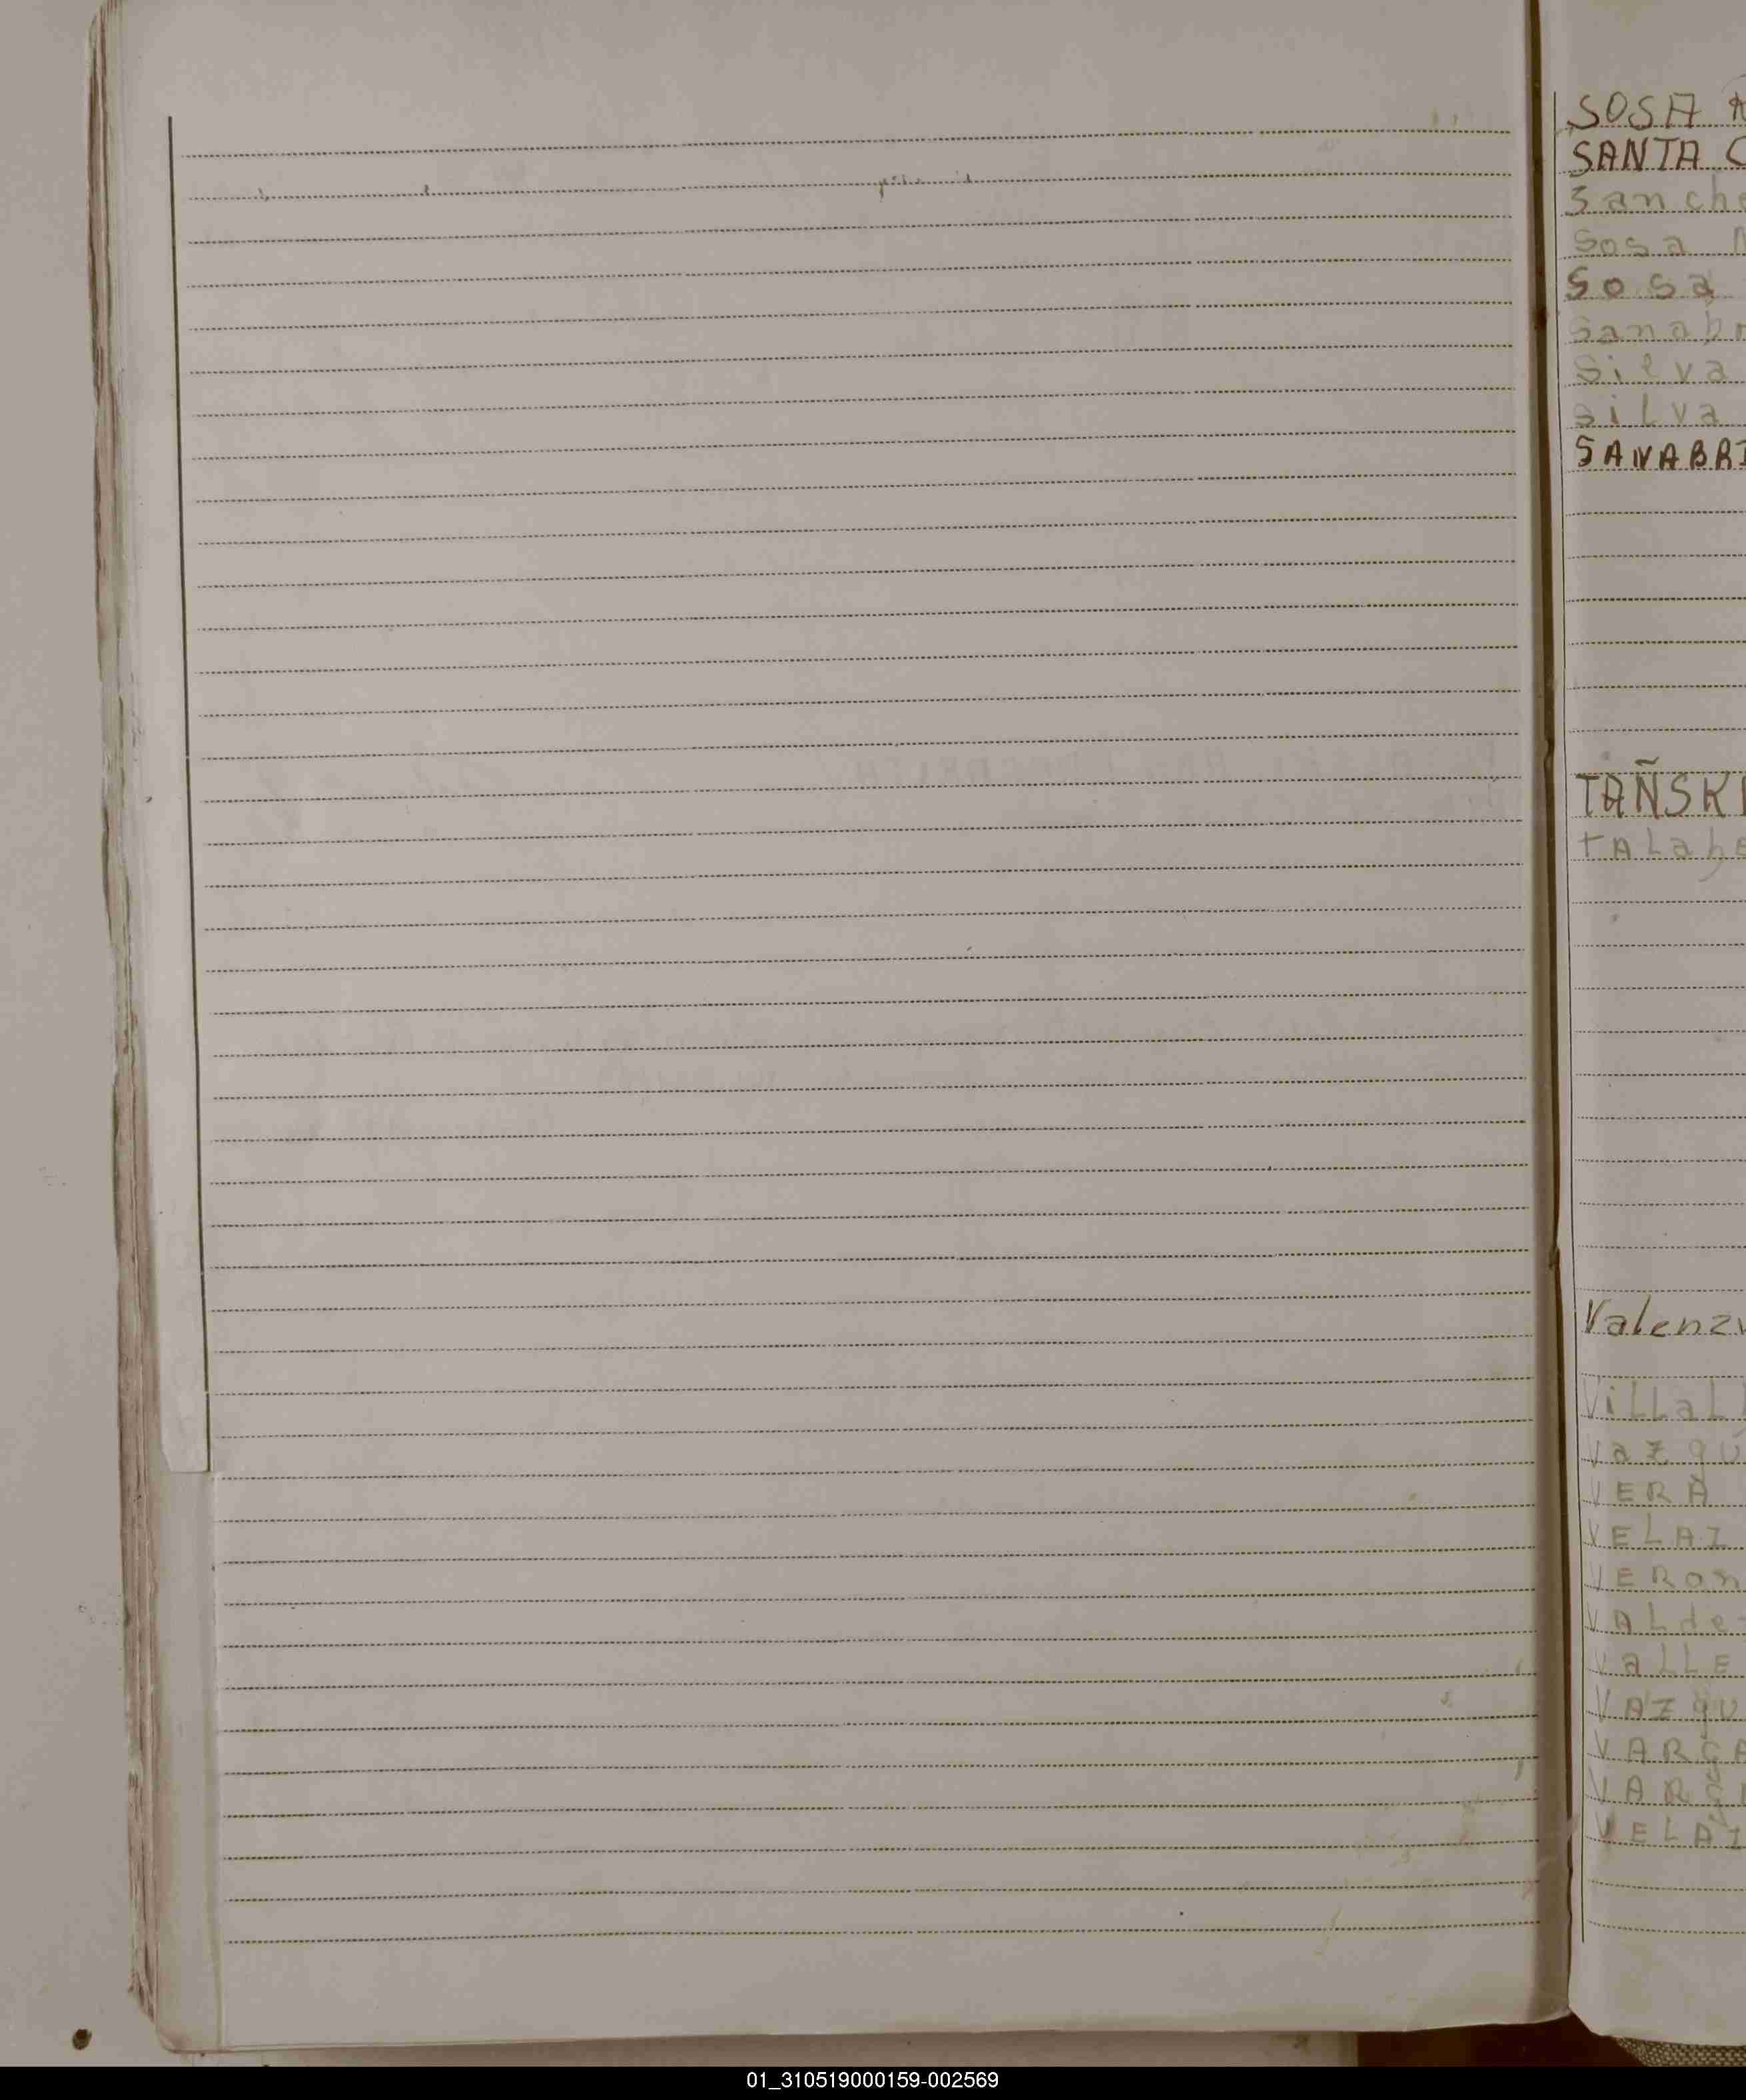 SOSA
SANTA C
Sanche
Sosa
Sosa
Sanabr
Silva
SiLva
SANABRI
TAÑSKI
tALabe
Valenzu
ViLLaL
Vazqu
VERA
VELAZ
VERon
VALdez
VaLLE
VAZqu
VARGA
VARGA
VELAZ
01_310519000159-002569